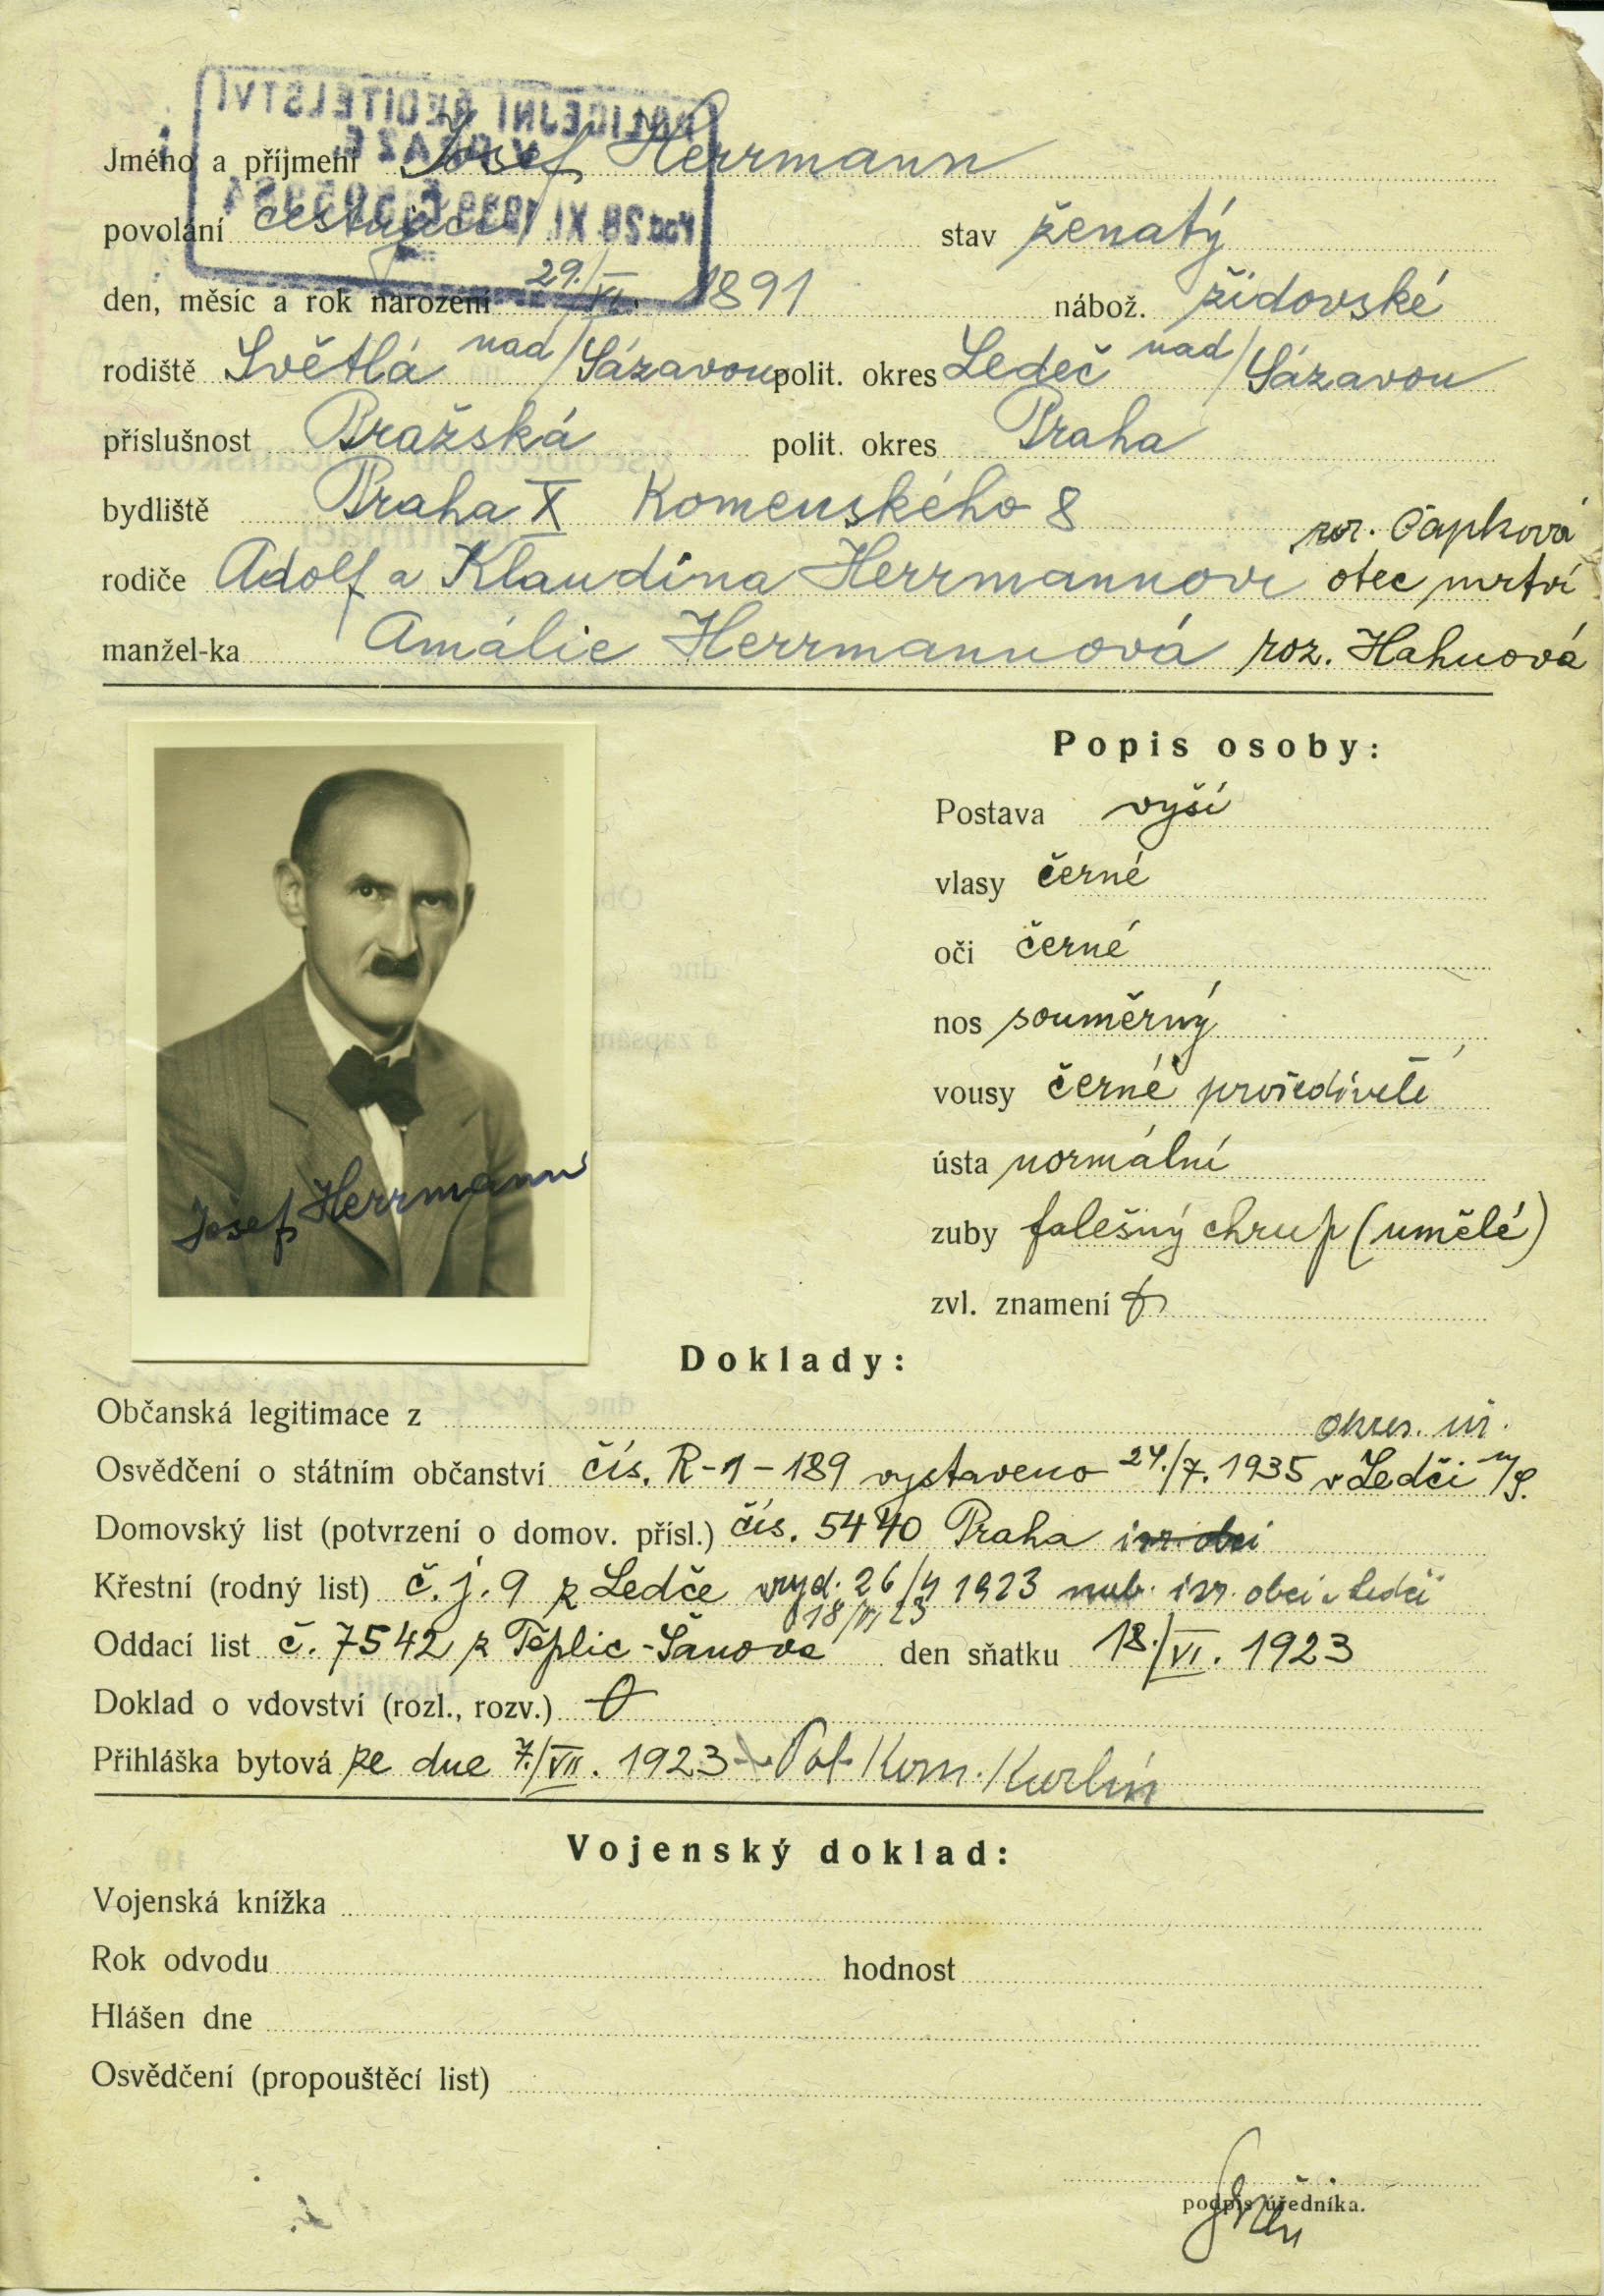 POLICEJNÍ ŘEDITELSTVÍ
V PRAZE
28 XI 1939
Jméno a příjmení Josef Herrmann
povolání cestující stav ženatý
den, měsíc a rok narození 29./VI. 1891 nábož. židovské
rodiště Světlá nad/Sázavou polit. okres Ledeč nad/Sázavou
příslušnost Pražská polit. okres Praha
bydliště Praha X Komenského 8
roz. Čapková
rodiče Adolf a Klaudina Herrmannovi otec mrtví
manžel-ka Amálie Herrmannová roz. Hahnová
Popis osoby:
Postava vyší
vlasy černé
oči černé
nos souměrný
vousy černé prošedivělé
ústa normální
zuby falešný chrup (umělé)
zvl. znamení
Josef Herrmann
Doklady:
Občanská legitimace z
okres. úř.
Osvědčení o státním občanství čís. R-1-189 vystaveno 24./7. 1935 v Ledči n/S.
Domovský list (potvrzení o domov. přísl.) čís. 5440 Praha
Křestní (rodný list) č. j. 9 z Ledče vyd. 26/4 1923 izr. obcí v Ledči
18/VI 23
Oddací list č. 7542 z Teplic-Šanova den sňatku 18./VI. 1923
Doklad o vdovství (rozl., rozv.)
Přihláška bytová ze dne 7./VII. 1923 Pol. Kom. Karlín
Vojenský doklad:
Vojenská knížka
Rok odvodu hodnost
Hlášen dne
Osvědčení (propouštěcí list)
podpis úředníka.